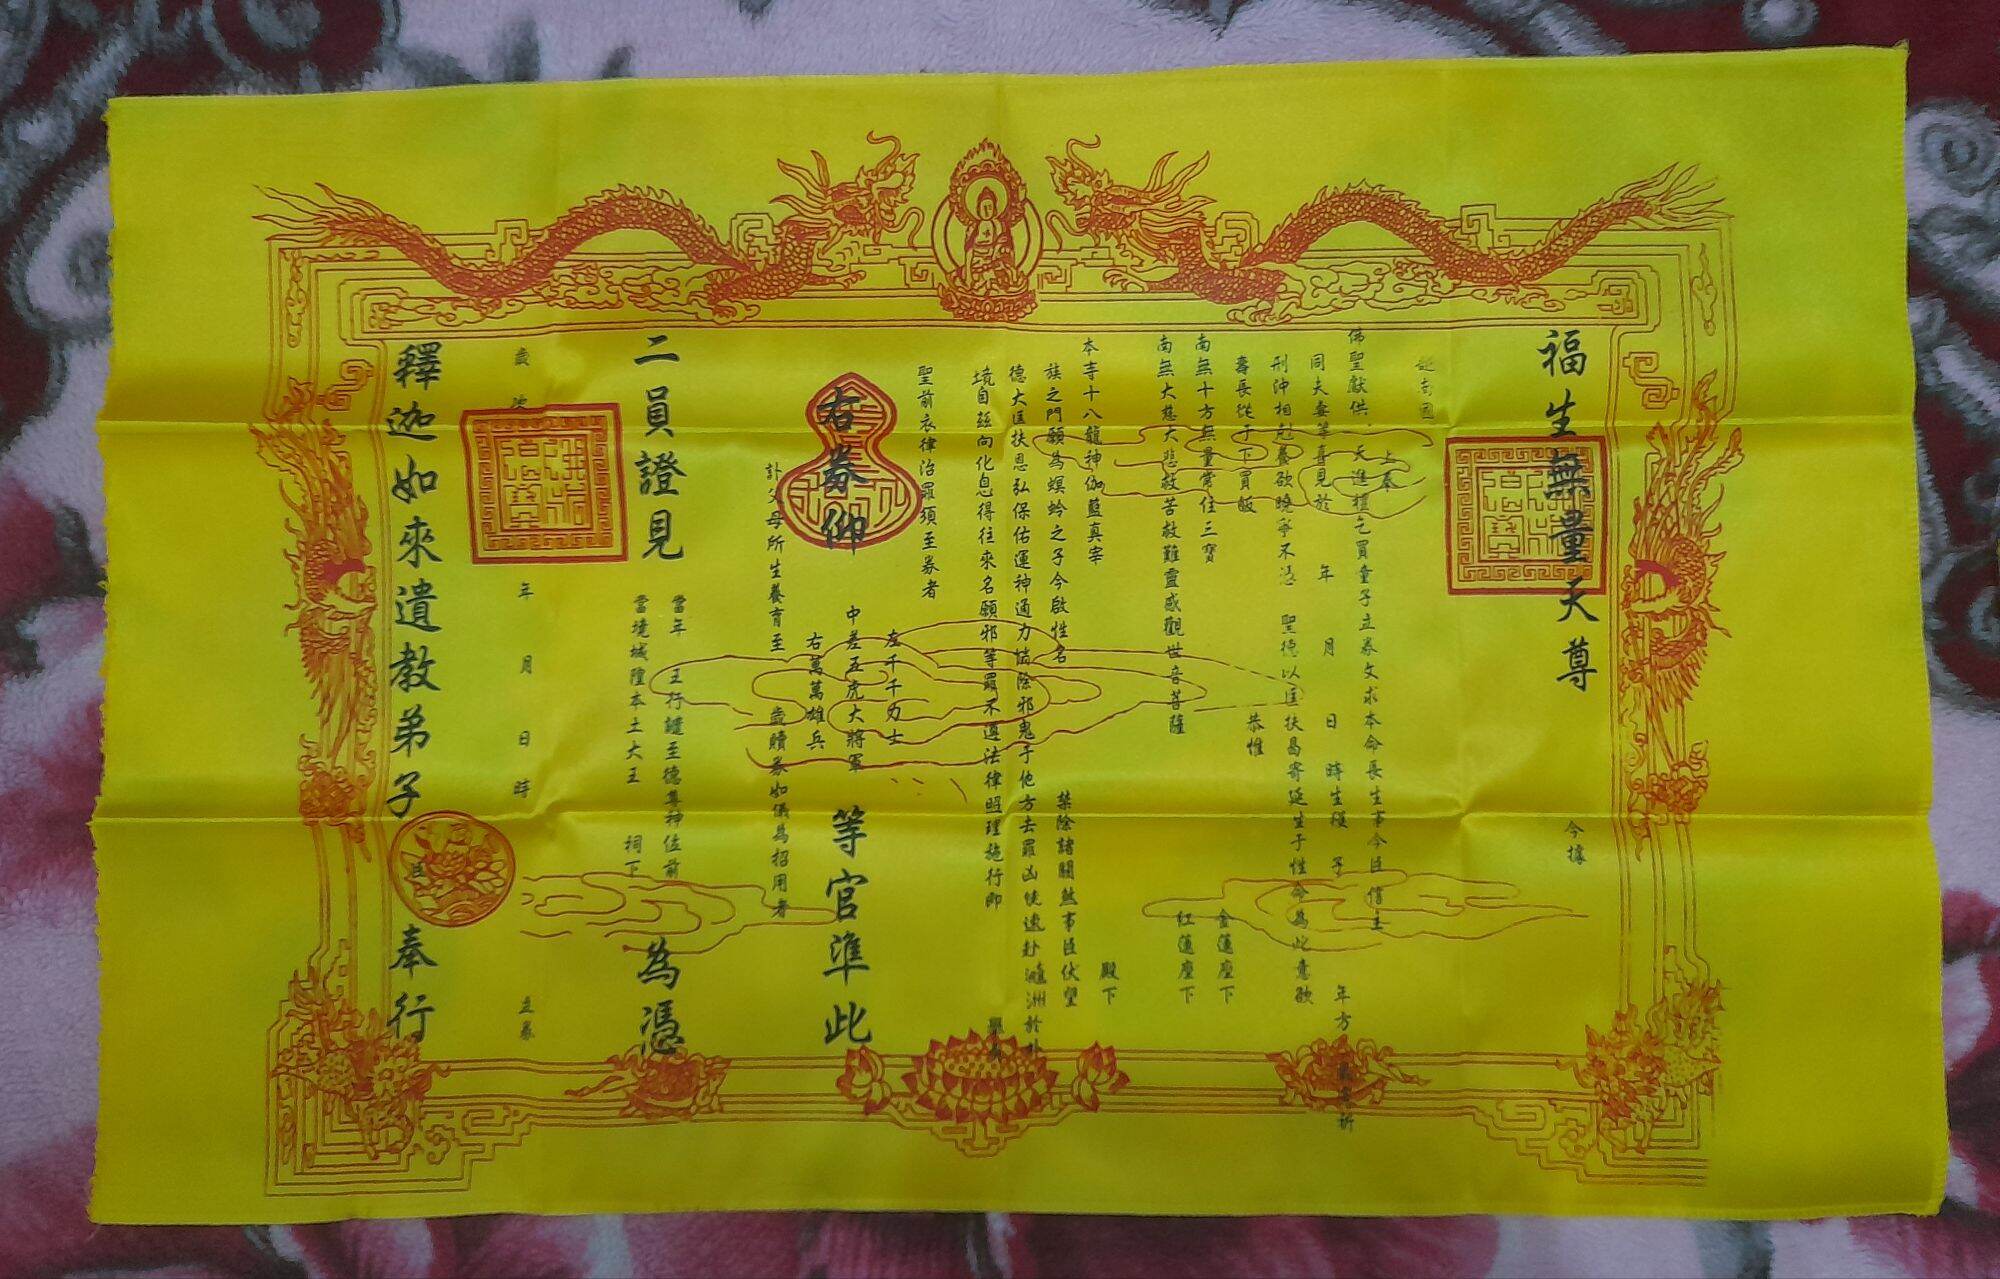 福生無量天尊
今據
越南國
上奉
佛聖獻供 天進禮乞買童子立券文求本命長生事今臣信主
年方
同夫妻等喜見於 年 月 日 時生稷 子
刑沖相剋養欲曉寧不憑 聖德以匡扶曷寄延生于性命為此意欲
壽長從于下買飯
恭惟
南無十方無量常住三寶
金蓮座下
南無大慈大悲救苦救難靈感觀世音菩薩
紅蓮座下
本寺十八龍神伽藍真宰
殿下
族之門願為螟蛉之子今啟性名
禁除諸關煞事臣伏望
德大匡扶恩弘保佑運神通力悄除邪鬼于他方去羅凶使速赴瀛洲於外
境自茲向化息得往來名願邪等羅不遵法律昭理施行即
聖前衣律治罪須至券者
右券仰
左千千力士
中差五虎大將軍
右萬萬雄兵
等官準此
訃父母所生養育至 歲贖券如儀為招用者
二員證見
當年 王行譴至德尊神位前
當境城隍本土大王 祠下
為憑
歲次 年 月 日 時 立券
釋迦如來遺教弟子 臣 奉行